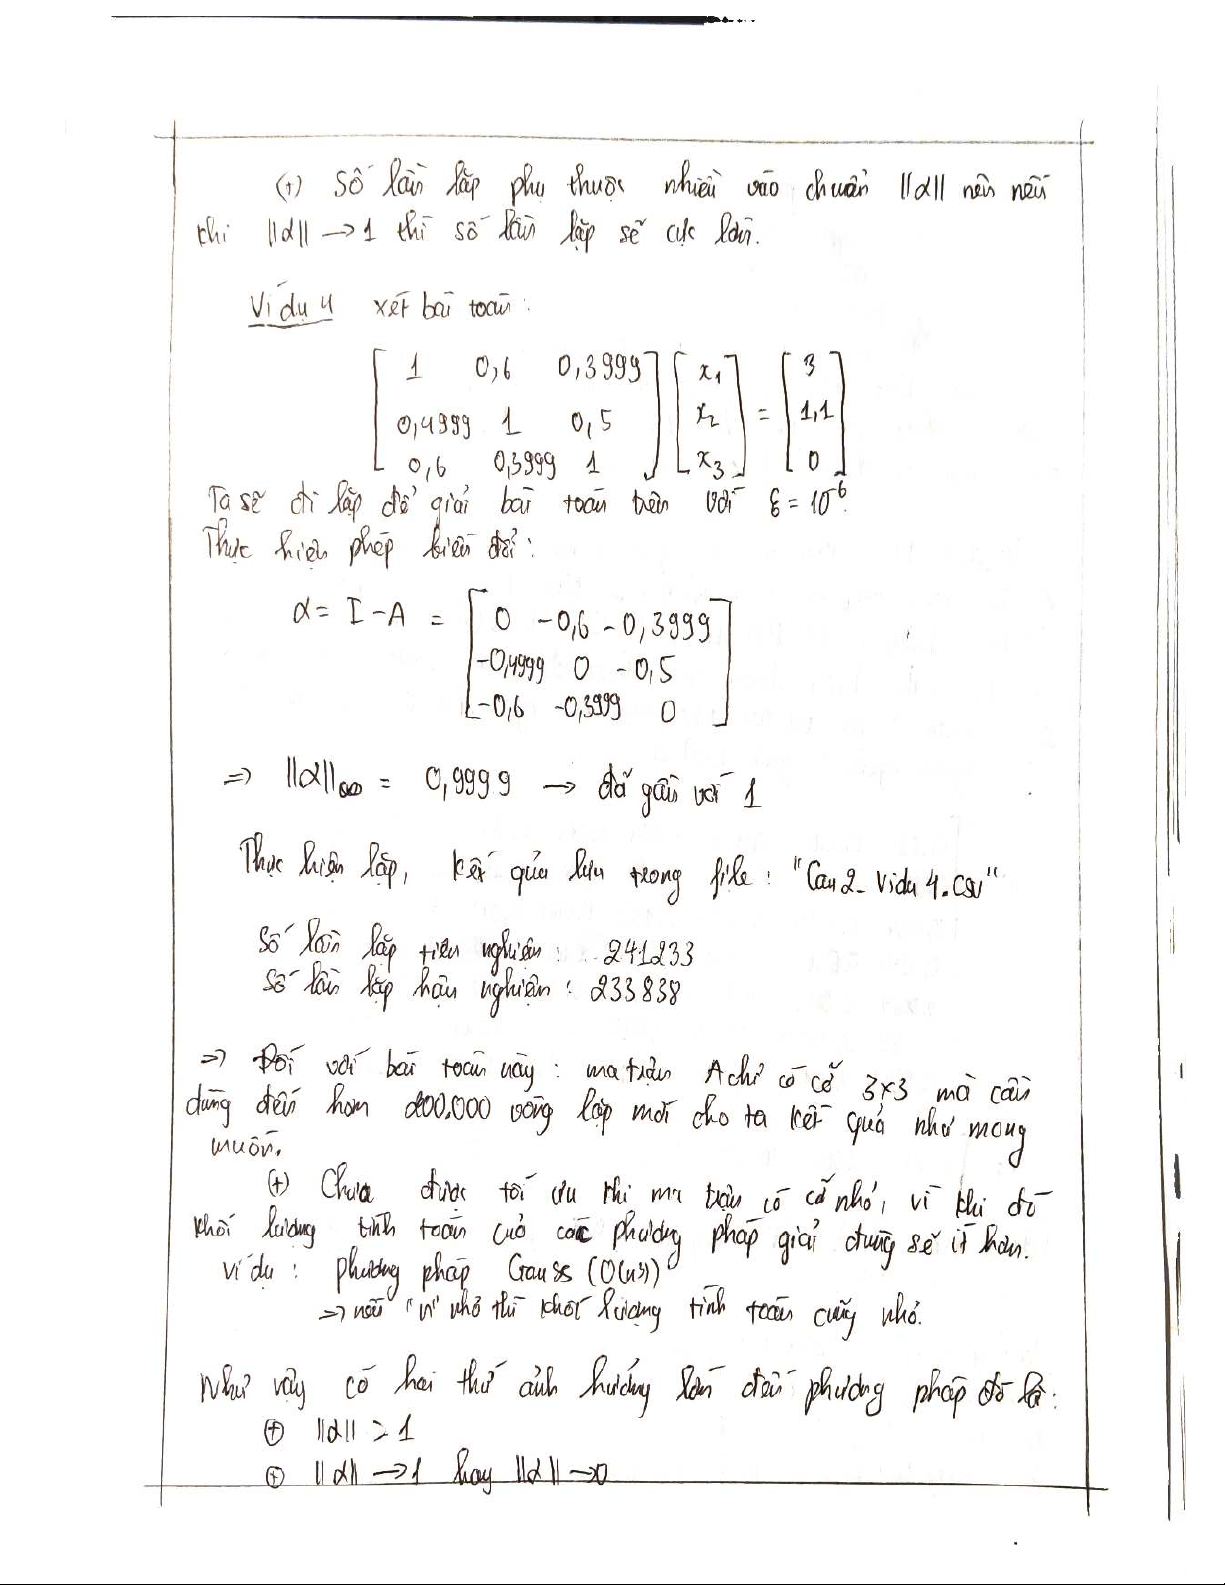 (+) Số lần lặp phụ thuộc nhiều vào chuẩn ||α|| nên nếu
khi ||α|| → 1 thì số lần lặp sẽ cực lớn.
Ví dụ 4 xét bài toán:
[ 1 0,6 0,3999 ] [ x₁ ] = [ 3 ]
[ 0,4999 1 0,5 ] [ x₂ ] = [ 1,1 ]
[ 0,6 0,3999 1 ] [ x₃ ] = [ 0 ]
Ta sẽ đi lặp để giải bài toán trên với ε = 10⁻⁶.
Thực hiện phép biến đổi:
α = I - A = [ 0 -0,6 -0,3999 ]
[ -0,4999 0 -0,5 ]
[ -0,6 -0,3999 0 ]
=> ||α||∞ = 0,9999 → đã gần với 1
Thực hiện lặp, kết qủa lưu trong file: "Cau2_Vidu4.csv"
Số lần lặp tiên nghiệm: 241233
Số lần lặp hậu nghiệm: 233838
=> Đối với bài toán này: ma trận A chỉ có cỡ 3x3 mà cần
dùng đến hơn 200.000 vòng lặp mới cho ta kết quả như mong
muốn.
(+) Chưa được tối ưu khi ma trận có cỡ nhỏ, vì khi đó
khối lượng tính toán của các phương pháp giải đúng sẽ ít hơn.
ví dụ: phương pháp Gauss (O(n³))
=> nếu "n" nhỏ thì khối lượng tính toán cũng nhỏ.
Như vậy có hai thứ ảnh hưởng lớn đến phương pháp đó là:
(+) ||α|| ≥ 1
(+) ||α|| → 1 hay ||α|| → 0